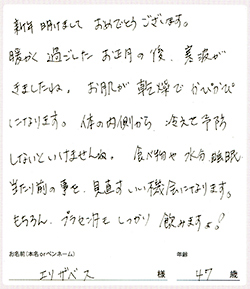 新年 明けまして おめでとう ございます。
暖かく 過ごした お正月の後、寒波が
きましたね。 お肌が 乾燥で かぴかぴ
になります。 体の内側から 冷えて 予防
しないといけませんね。 食べ物や 水分 睡眠
当たり前の事を、見直す いい機会になります。
もちろん、プラセンタも しっかり 飲みますよ!
お名前(本名orペンネーム) 年齢
エリザベス 様 47 歳